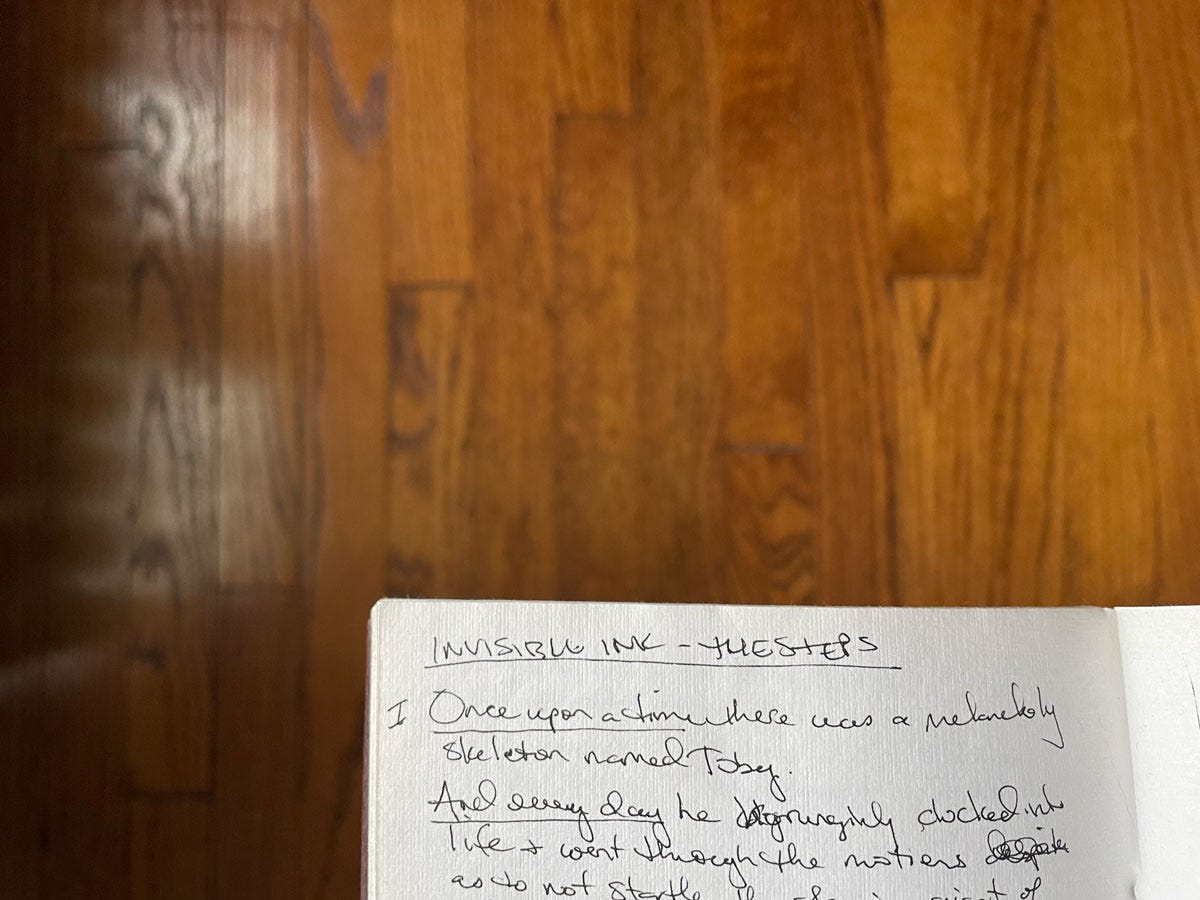 INVISIBLE INK - THE STEPS
I Once upon a time there was a melancholy
skeleton named Toby.
And every day he begrungingly clocked into
life + went through the motions despite
as to not startle
of